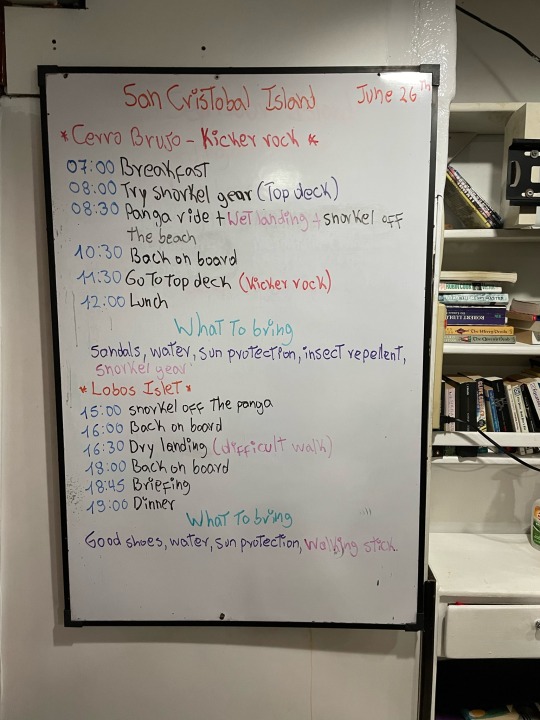 San Cristobal Island June 26th
* Cerro Brujo - Kicker rock *
07:00 Breakfast
08:00 Try snorkel gear (Top deck)
08:30 Panga ride + Wet landing + snorkel off
the beach
10:30 Back on board
11:30 Go To top deck (Kicker rock)
12:00 Lunch
What To bring
Sandals, water, sun protection, insect repellent,
snorkel gear
* Lobos Islet *
15:00 snorkel off The panga
16:00 Back on board
16:30 Dry landing (difficult walk)
18:00 Back on board
18:45 Briefing
19:00 Dinner
What To bring
Good shoes, water, sun protection, Walking stick.
ROBIN COOK